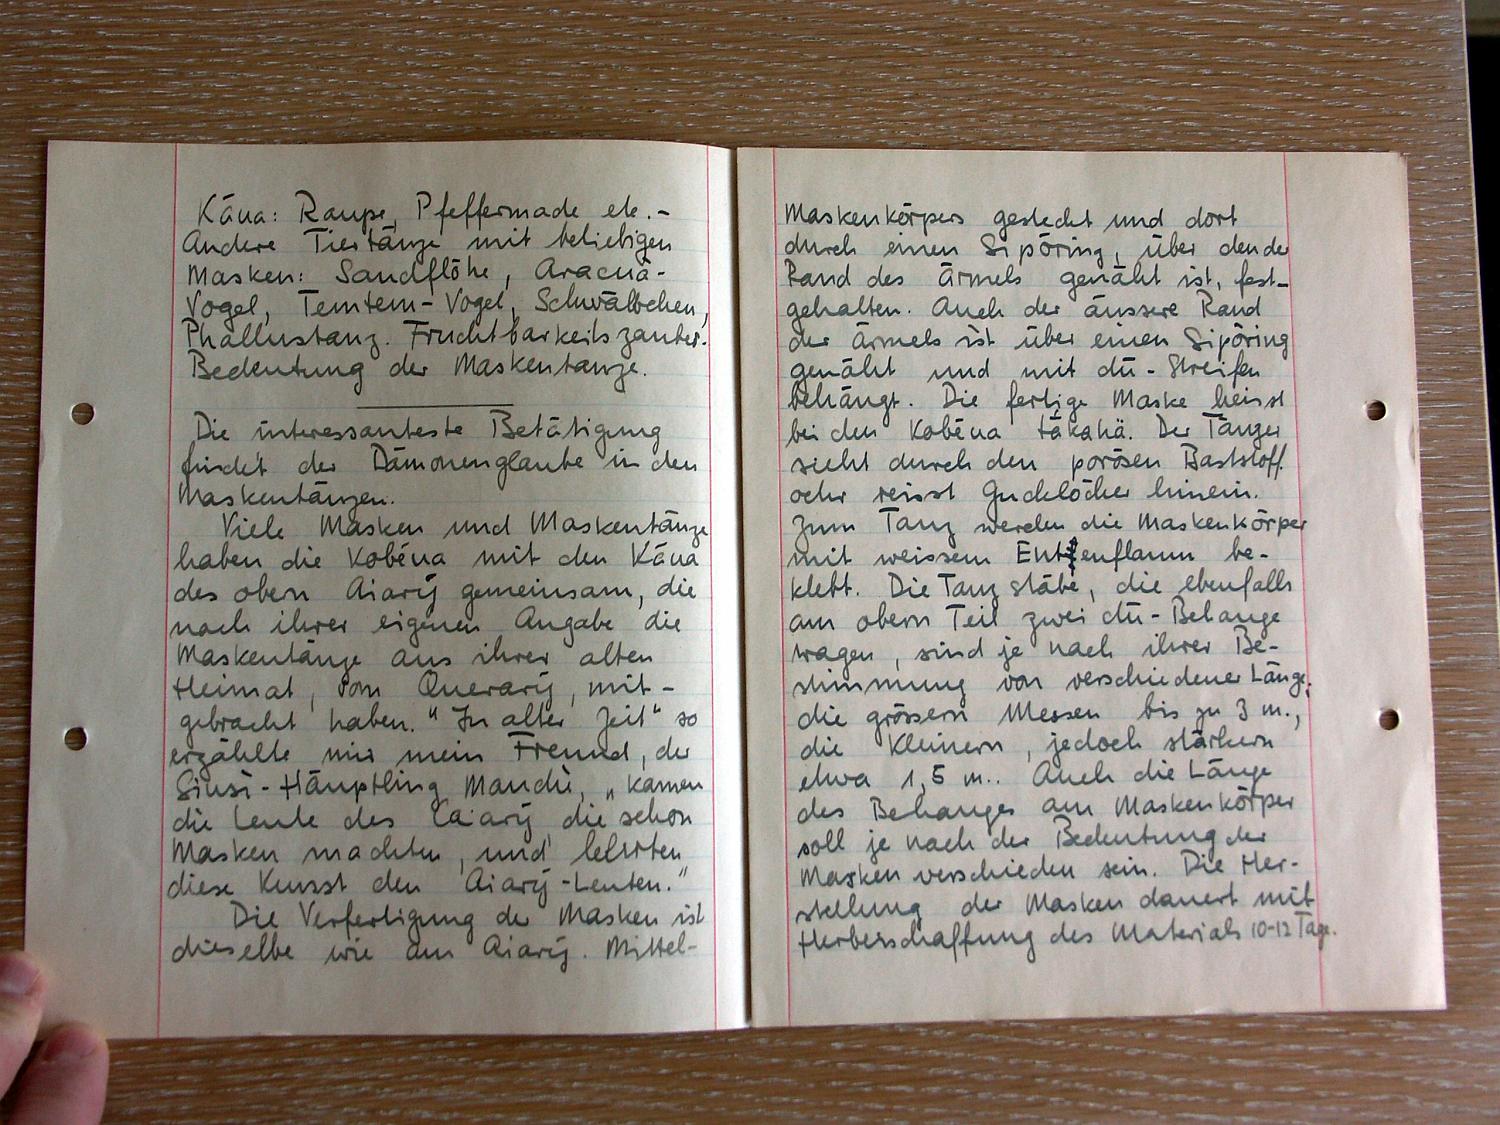 Káua: Raupe, Pfeffermade etc.-
Andere Tiertänze mit beliebigen
Masken: Sandflöhe, Aracuá-
Vogel, Temtem-Vogel, Schwälbchen,
Phallustanz. Fruchtbarkeitszauber.
Bedeutung der Maskentänze.
Die interessanteste Betätigung
findet der Dämonenglaube in den
Maskentänzen.
Viele Masken und Maskentänze
haben die Kobéua mit den Káua
des obern Aiarý gemeinsam, die
nach ihrer eigenen Angabe die
Maskentänze aus ihrer alten
Heimat, vom Querarý, mit-
gebracht haben. "In alter Zeit" so
erzählte mir mein Freund, der
Siusí-Häuptling Mandú, „kamen
die Leute des Caiarý, die schon
Masken machten, und lehrten
diese Kunsst den Aiarý-Leuten."
Die Verfertigung der Masken ist
dieselbe wie am Aiarý. Mittel-
Maskenkörpers gesteckt und dort
durch einen Sipóring, über den der
Rand des Ärmels genäht ist, fest-
gehalten. Auch der äussere Rand
der Ärmels ist über einen Sipóring
genäht und mit dü-Streifen
behängt. Die fertige Maske heisst
bei den Kobéua tákahä. Der Tänzer
sieht durch den porösen Baststoff
oder reisst Gucklöcher hinein.
Zum Tanz werden die Maskenkörper
mit weissem Entenflaum be-
klebt. Die Tanzstäbe, die ebenfalls
am obern Teil zwei dü-Behänge
tragen, sind je nach ihrer Be-
stimmung von verschiedener Länge;
die grössern Messen bis zu 3 m.,
die kleinern, jedoch stärkern
etwa 1,5 m.. Auch die Länge
des Behanges am Maskenkörper
soll je nach der Bedeutung der
Masken verschieden sein. Die Her-
stellung der Masken dauert mit
Herbeischaffung des Materials 10-12 Tage.